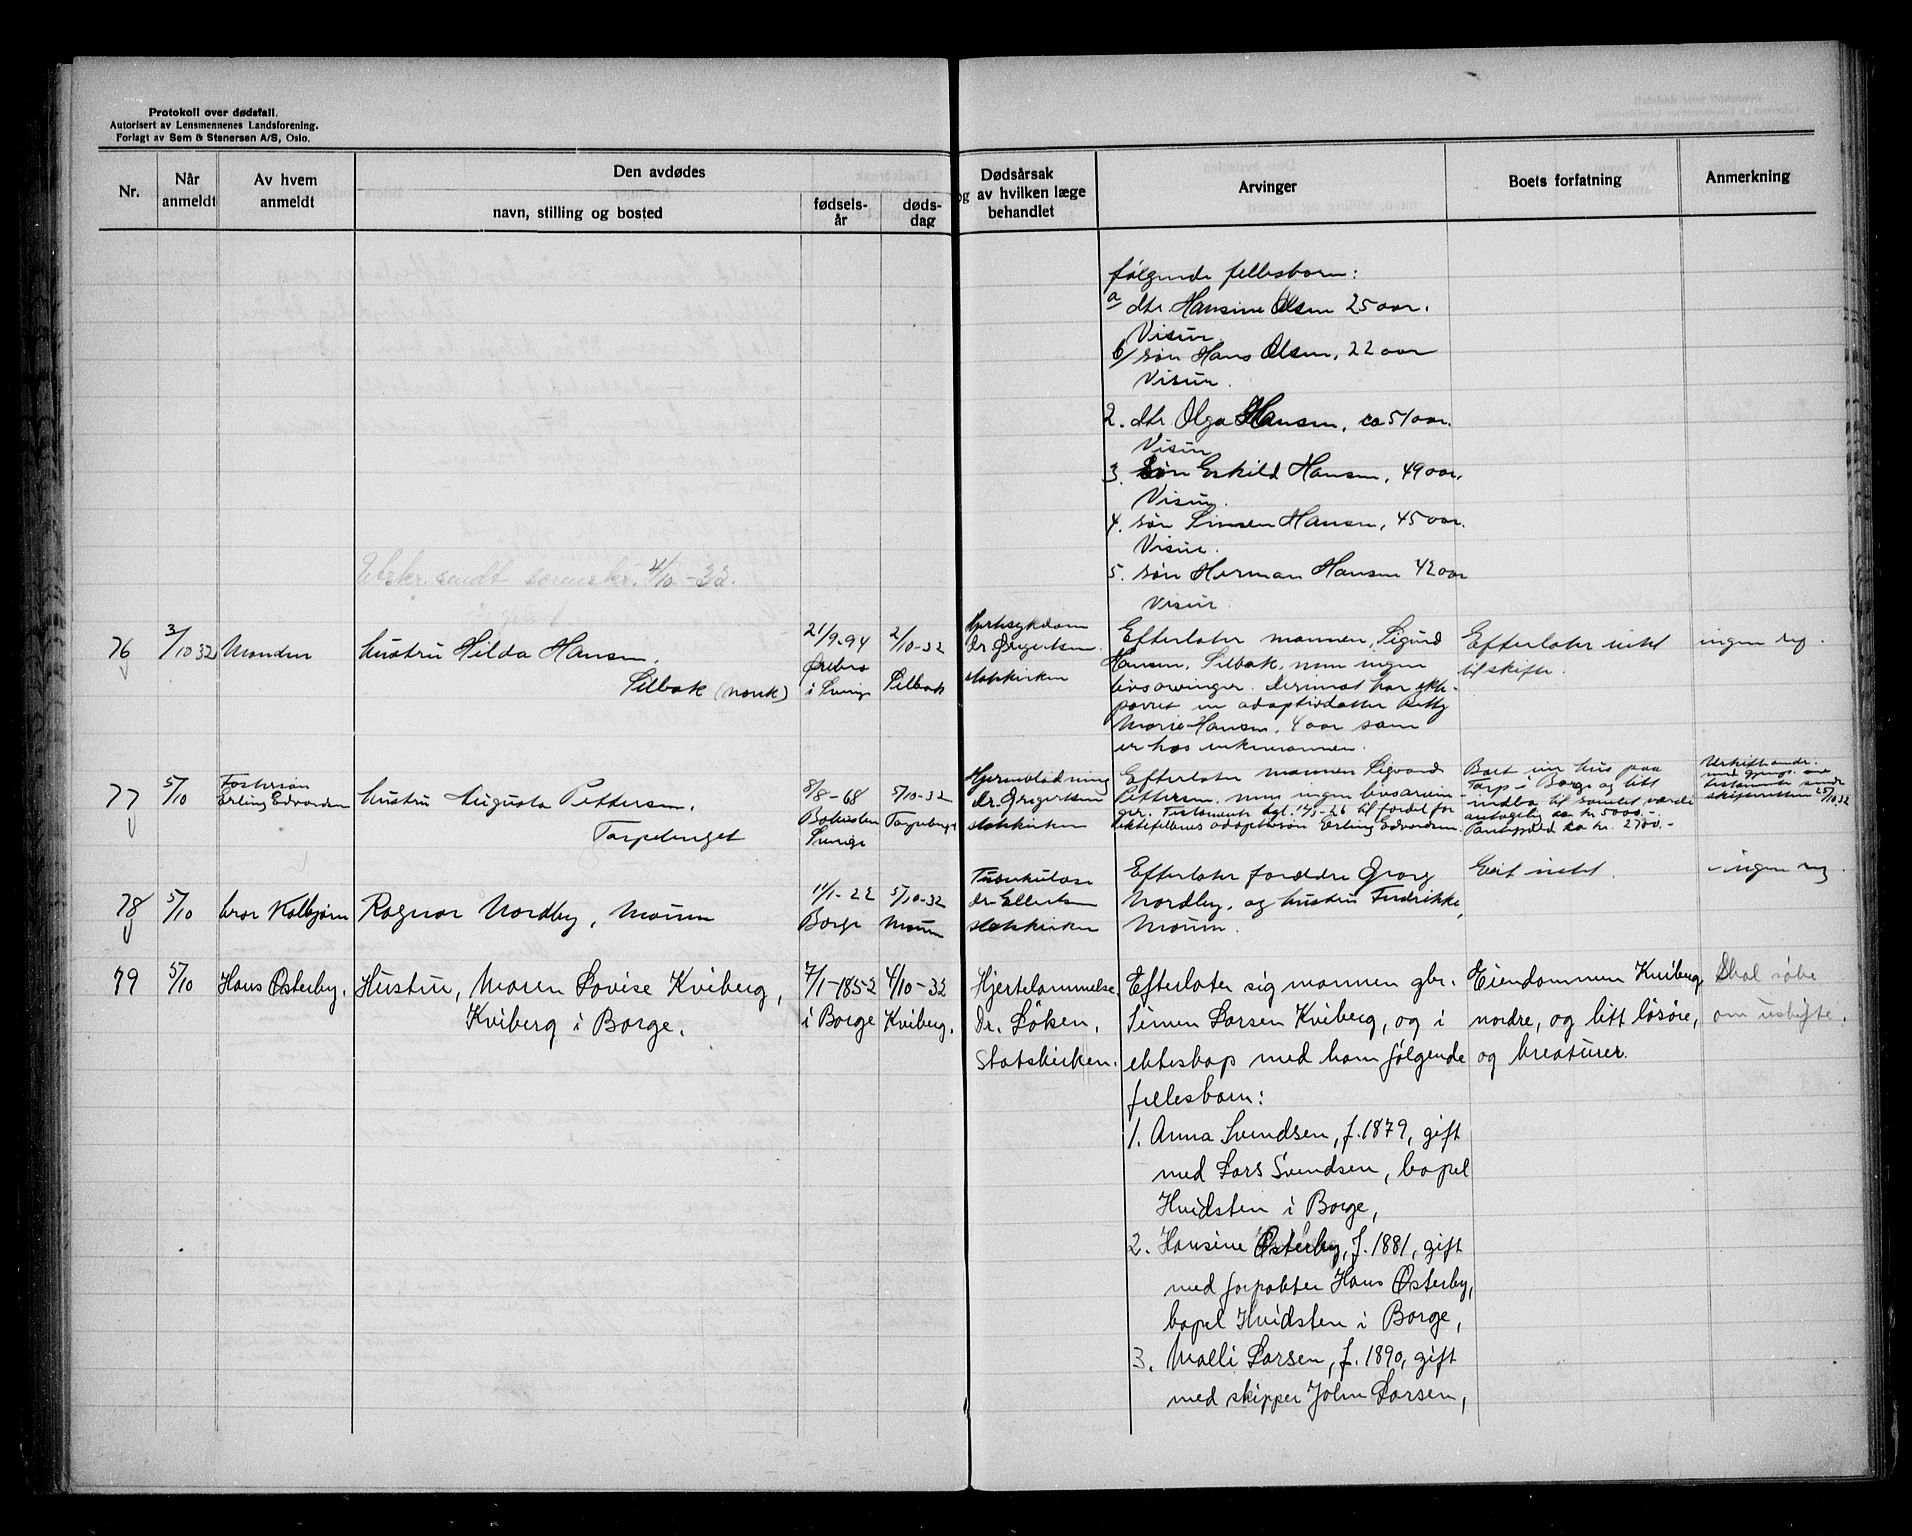 Protokoll over dødsfall.
Autorisert av Lensmennenes Landsforening.
Forlagt av Sem & Stenersen A/S, Oslo.
Nr.
Når anmeldt
Av hvem anmeldt
Den avdødes
navn, stilling og bosted
fødsels-år
døds-dag
Dødsårsak
og av hvilken læge
behandlet
Arvinger
Boets forfatning
Anmerkning
følgende fellesbarn:
a dtr Hansine Olsen 25 aar.
Visur
b/ søn Hans Olsen, 22 aar
Visur.
2. dtr Olga Hansen, ca 51 aar.
Visur
3. søn Eskild Hansen, 49 aar.
Visur.
4. søn Simen Hansen, 45 aar.
Visur.
5. søn Herman Hansen 42 aar
Visur.
Utskr. sendt sorenskr. 4/10-32.
76
3/10 32
Manden
hustru Hilda Hansen.
Selbak (norsk)
21/9-94
Örebro
i Sverige
2/10-32
Selbak
Hjertesykdom
Dr. Gregertsen
statskirken
Efterlater mannen, Sigurd
Hansen, Selbak, men ingen
livsarvinger. Derimot har ekte-
parret en adoptivdatter Betty
Marie Hansen, 4 aar som
er hos enkemannen.
Efterlater intet
til skifte.
ingen reg.
77
5/10
Fostersøn
Erling Edvardsen
hustru Augusta Pettersen.
Torpebenget
8/8-68
Bohuslen
Sverige
5/10-32
Torpebenget
Hjerneblødning
dr. Gregertsen
statskirken
Efterlater mannen Sigvard
Pettersen, men ingen livsarvin-
ger. Testamente dgt. 14/5-26 til fordel for
ektefellenes adoptivsøn Erling Edvardsen.
Boet eier hus paa
Torp i Borge og litt
indbo til samlet værdi
antagelig ca kr. 5000.-
Pantegjeld ca kr. 2700.-
testamente sendt
skifteretten 25/10.32
78
5/10
bror Kolbjørn
Ragnar Nordby, Moum
11/1-22
Borge
5/10-32
Moum
Tuberkulose
dr. Ellertsen
statskirken
Efterlater foreldre Georg
Nordby, og hustru Fredrikke,
Moum.
Eiet intet.
ingen reg.
79
5/10
Hans Østerby.
Hustru, Maren Lovise Kviberg,
Kviberg i Borge.
7/1-1852
i Borge
4/10-32
Kviberg.
Hjertelammelse.
Dr. Løken,
Statskirken.
Efterlater sig mannen gbr.
Simen Larsen Kviberg, og i
ekteskap med ham følgende
fellesbarn:
1. Anna Svendsen, f. 1879, gift
med Lars Svendsen, bopel
Hvidsten i Borge,
2. Hansine Østerby, f. 1881, gift
med forpakter Hans Østerby,
bopel Hvidsten i Borge,
3. Malli Larsen, f. 1890, gift
med skipper John Larsen,
Eiendommen Kviberg
nordre, og litt løsøre,
og kreaturer.
Skal søke
om uskifte.